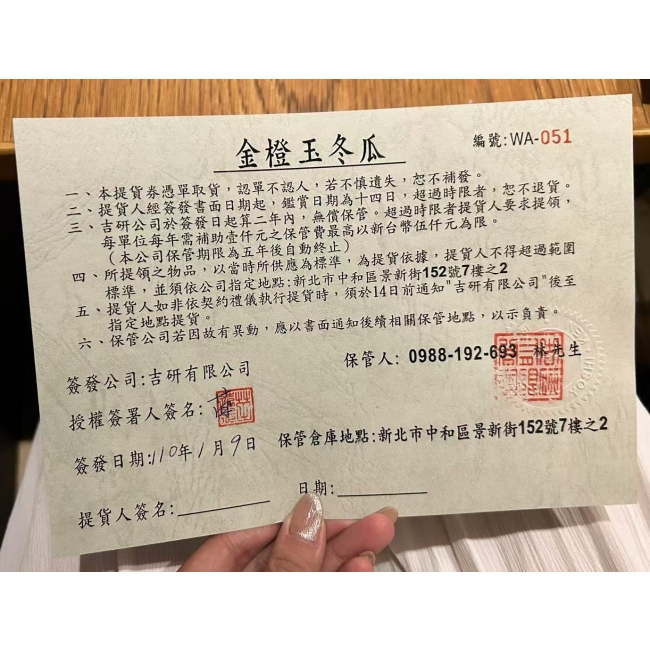 金橙玉冬瓜
編號:WA-051
一、本提貨券憑單取貨，認單不認人，若不慎遺失，恕不補發。
二、提貨人經簽發書面日期起，鑑賞日期為十四日，超過時限者，恕不退貨。
三、吉研公司於簽發日起算二年內，無償保管。超過時限者提貨人要求提領，
每單位每年需補助壹仟元之保管費最高以新台幣伍仟元為限。
（本公司保管期限為五年後自動終止）
四、所提領之物品，以當時所供應為標準，為提貨依據，提貨人不得超過範圍
標準，並須依公司指定地點:新北市中和區景新街152號7樓之2
五、提貨人如非依契約禮儀執行提貨時，須於14日前通知"吉研有限公司"後至
指定地點提貨。
六、保管公司若因故有異動，應以書面通知後續相關保管地點，以示負責。
保管人: 0988-192-693 林先生
簽發公司:吉研有限公司
授權簽署人簽名:
簽發日期:110年1月9日
保管倉庫地點:新北市中和區景新街152號7樓之2
提貨人簽名:
日期: